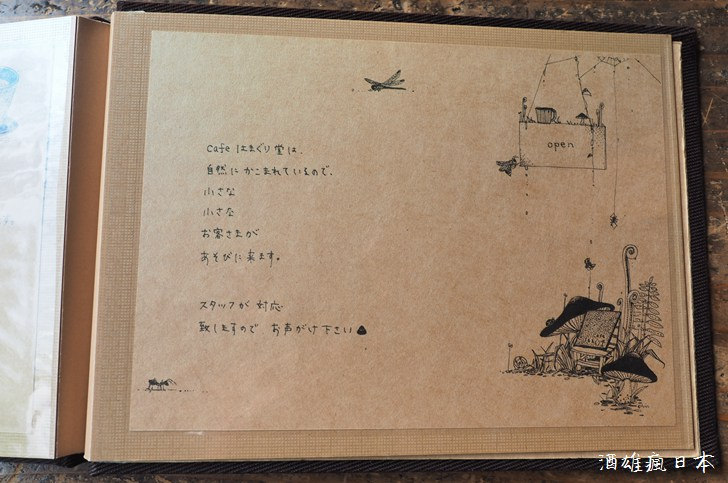 Cafe はまぐり堂は、
自然にかこまれているので、
小さな
小さな
お客さまが
あそびに来ます。
スタッフが 対応
致しますので お声がけ下さい
open
酒雄瘋日本